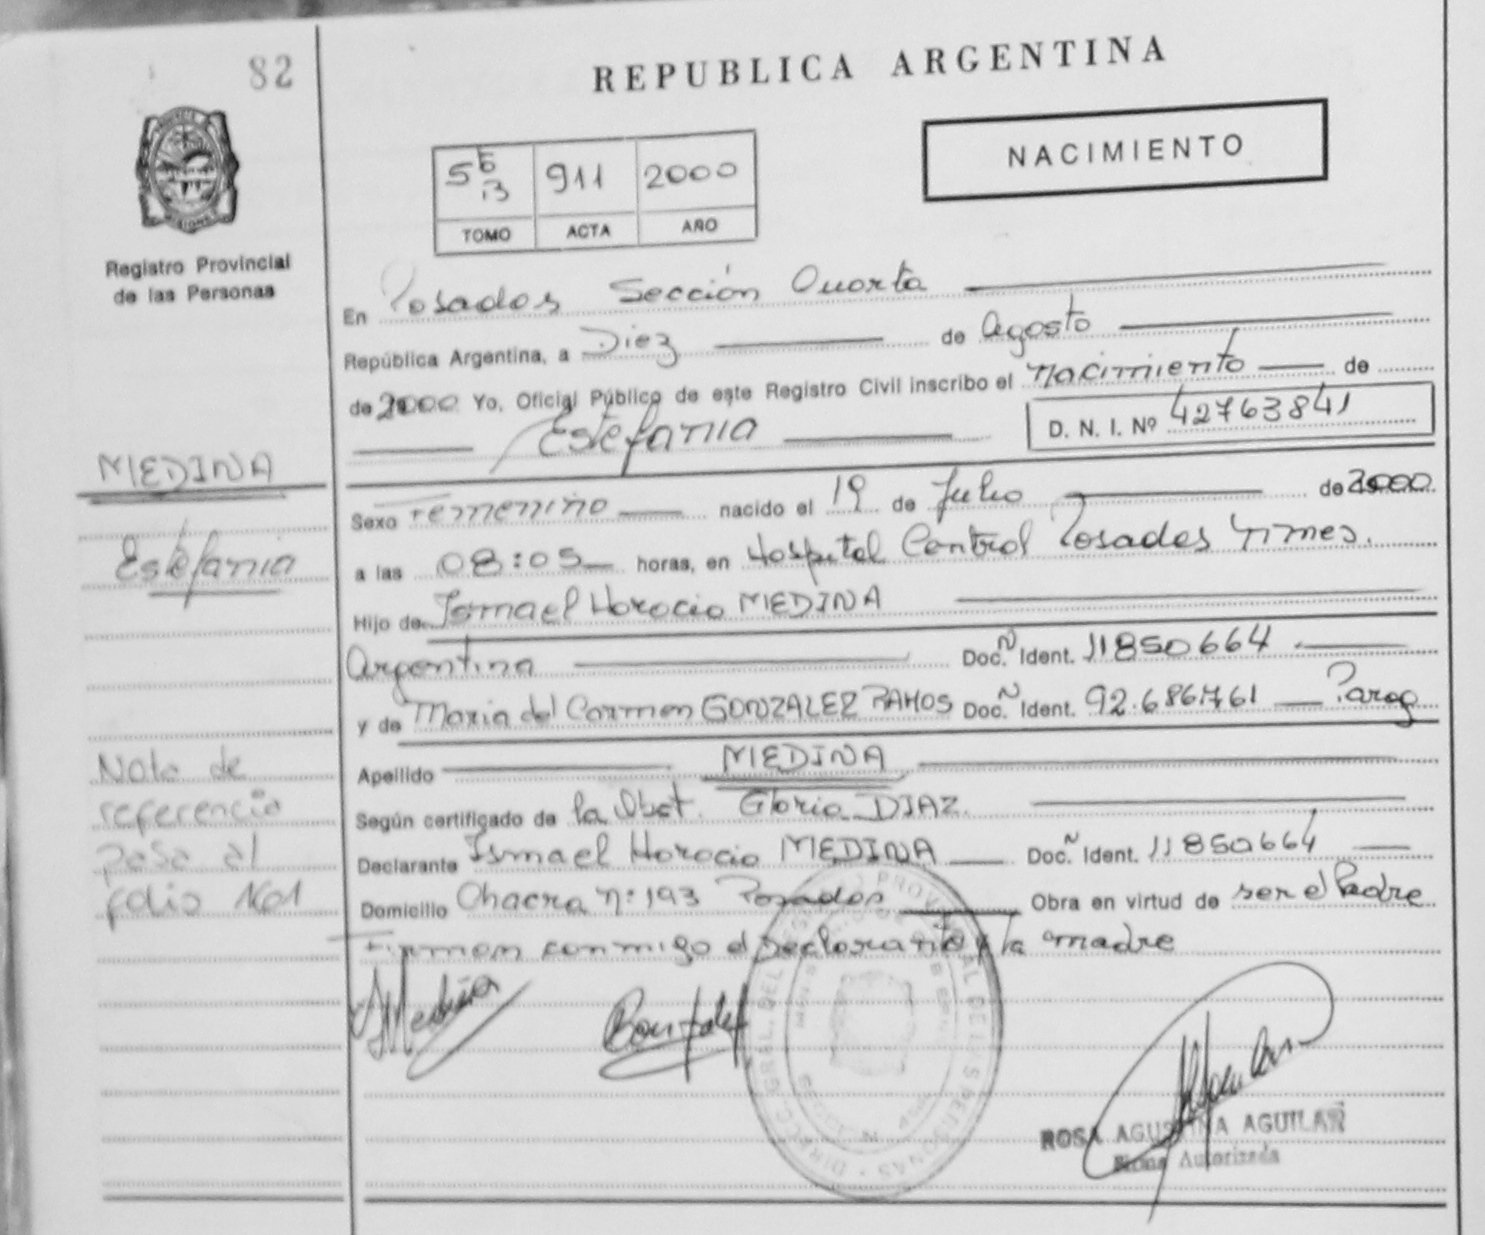 82
REPUBLICA ARGENTINA
NACIMIENTO
5B 911 2000
TOMO ACTA AÑO
Registro Provincial
de las Personas
En Posadas Sección Cuarta
República Argentina, a Diez de Agosto
de 2000 Yo, Oficial Público de este Registro Civil inscribo el Nacimiento de
Estefania D. N. I. Nº 42763841
MEDINA
Estefania
Sexo Femenino nacido el 19 de Julio de 2000
a las 08:05 horas, en Hospital Central Posadas Mnes.
Hijo de Ismael Horacio MEDINA
Argentina Doc. N Ident. 11850664
y de Maria del Carmen GONZALEZ RAMOS Doc. N Ident. 92.686.761 Parag
Apellido MEDINA
Según certificado de la Obst. Gloria DIAZ.
Declarante Ismael Horacio MEDINA Doc. N Ident. 11850664
Domicilio Chacra nº 193 Posadas Obra en virtud de ser el Padre
Firman conmigo el declarante y la madre
Nota de
referencia
pasa al
folio 161
Medina
Gonzalez
ROSA AGUSTINA AGUILAR
Firma Autorizada